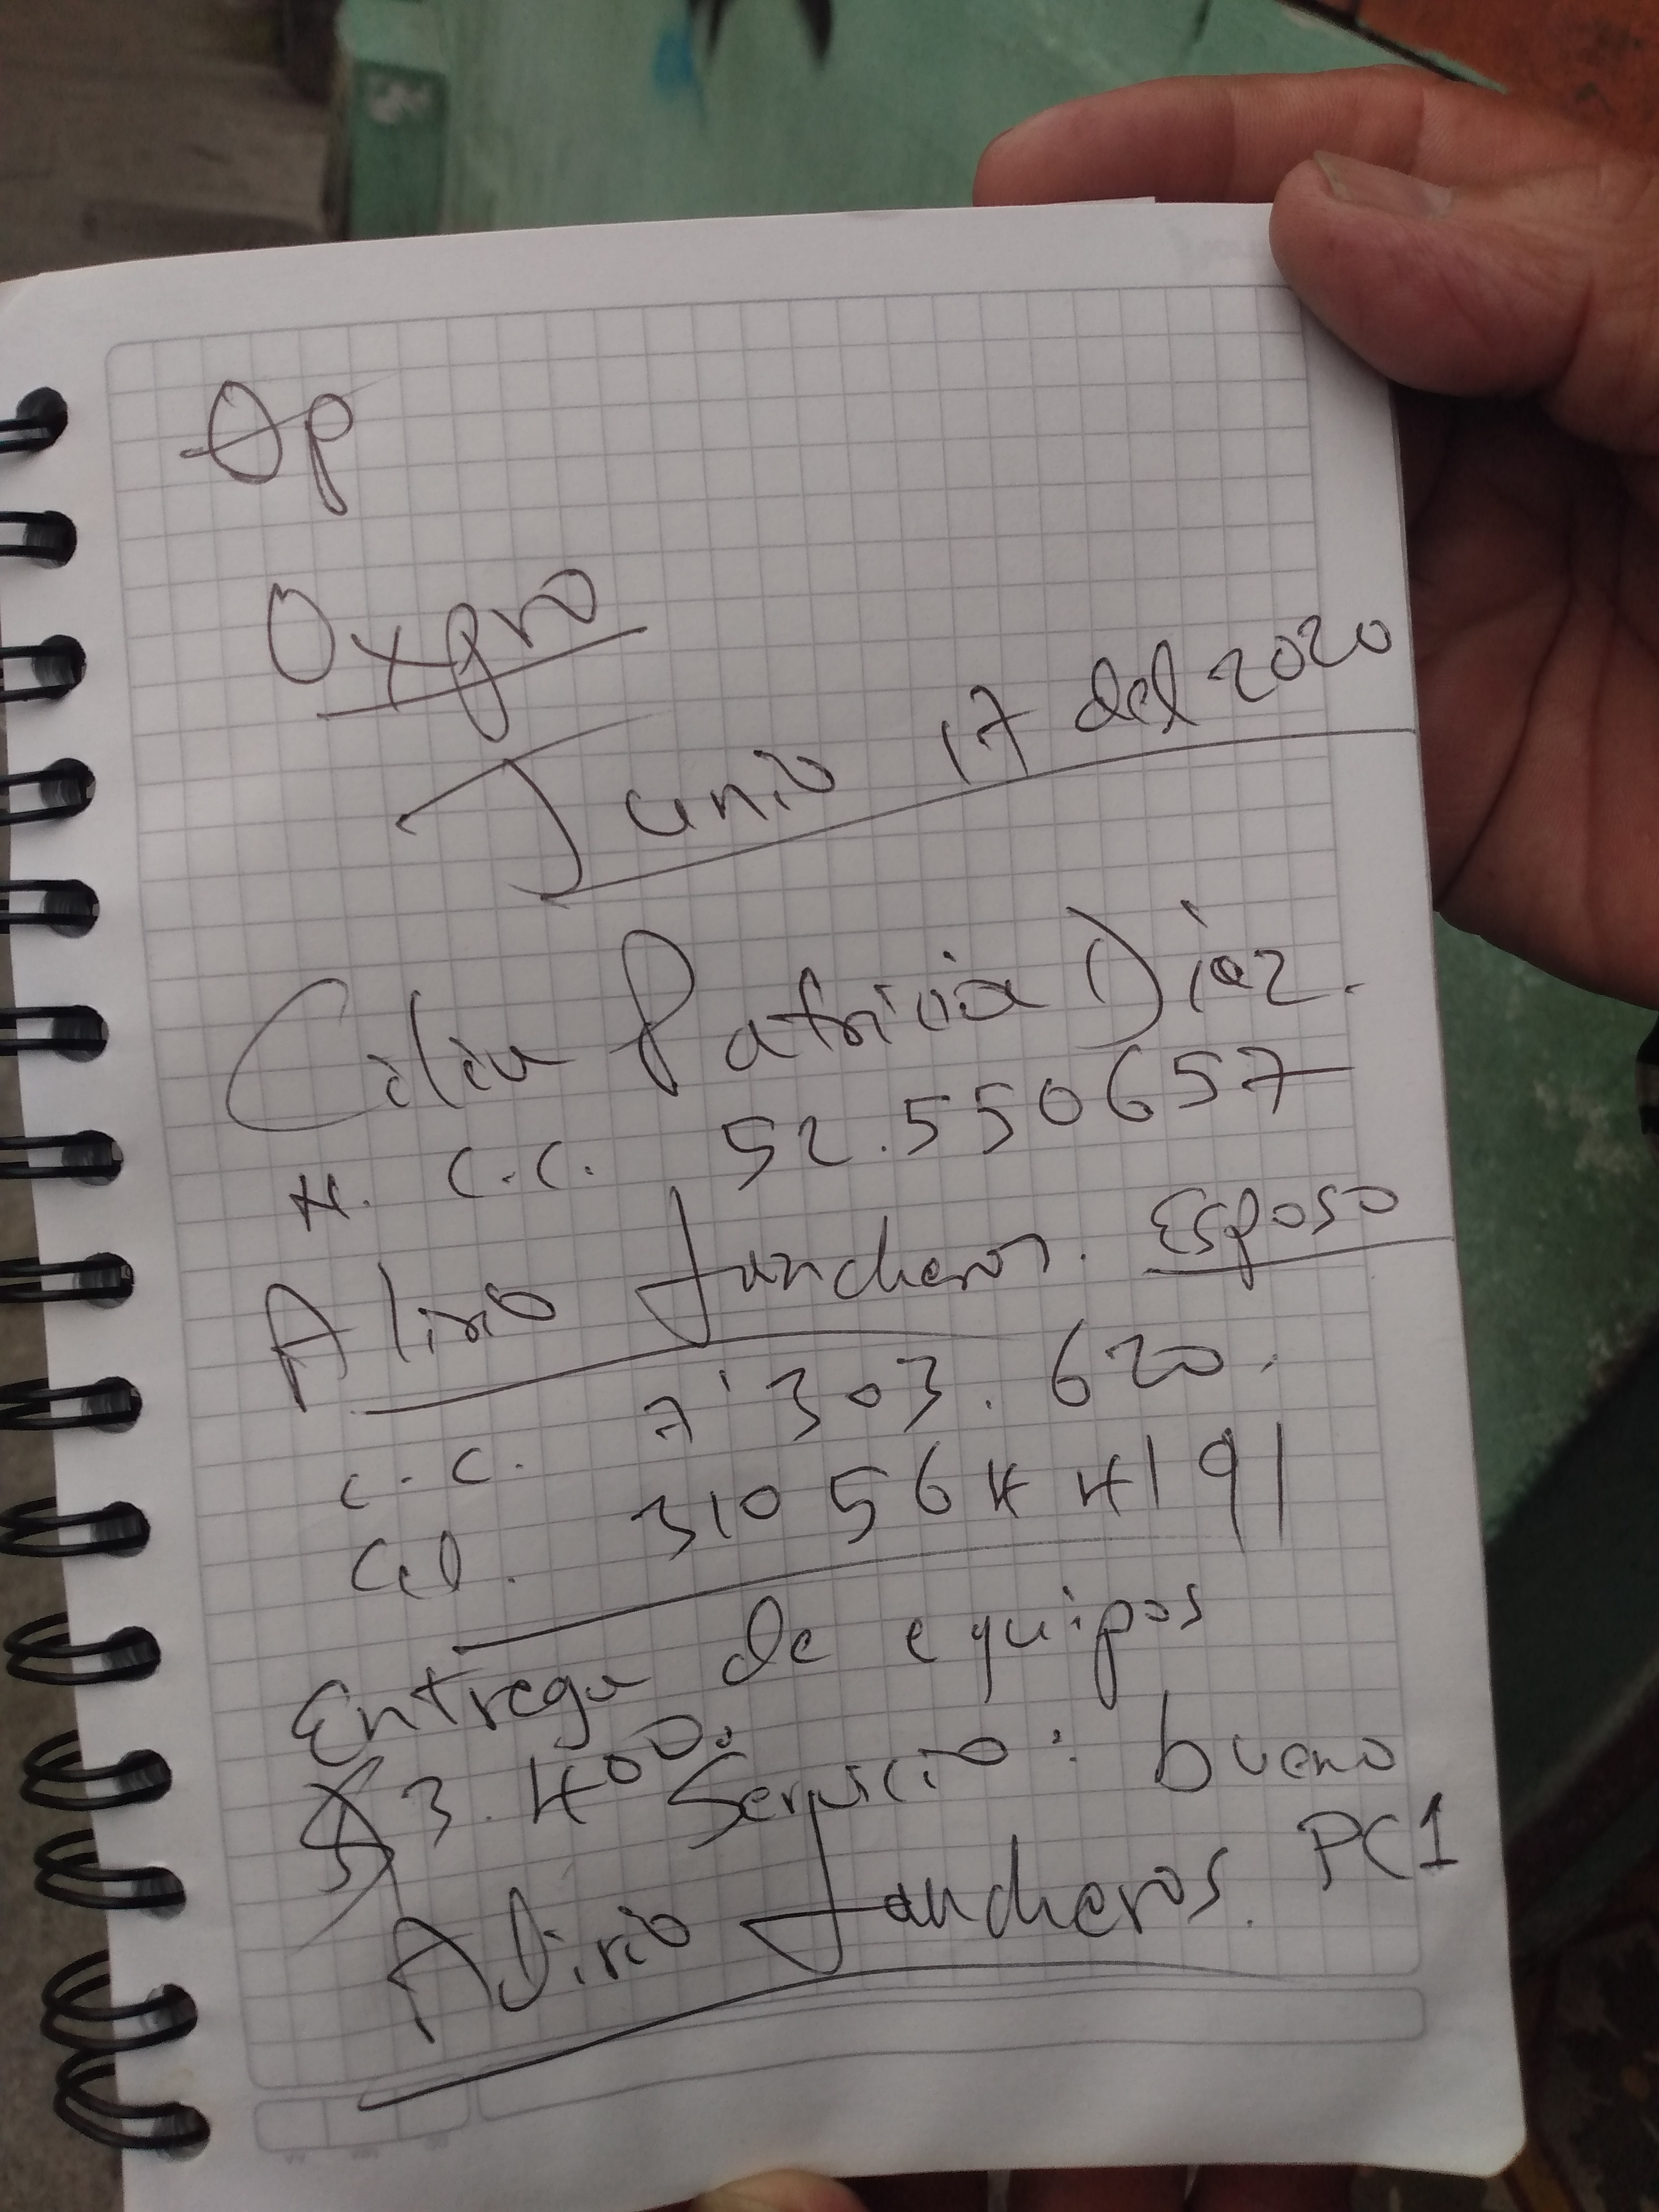 Op
Oxpro
Junio 17 del 2020
Cilia Patricia Díaz.
N. C.C. 52.550657
Alirio Lancheros. Esposo
C.C. 7'303.620.
Cel. 310 564 4191
Entrega de equipos
$3.400. Servicio: bueno
PC1
Alirio Lancheros.